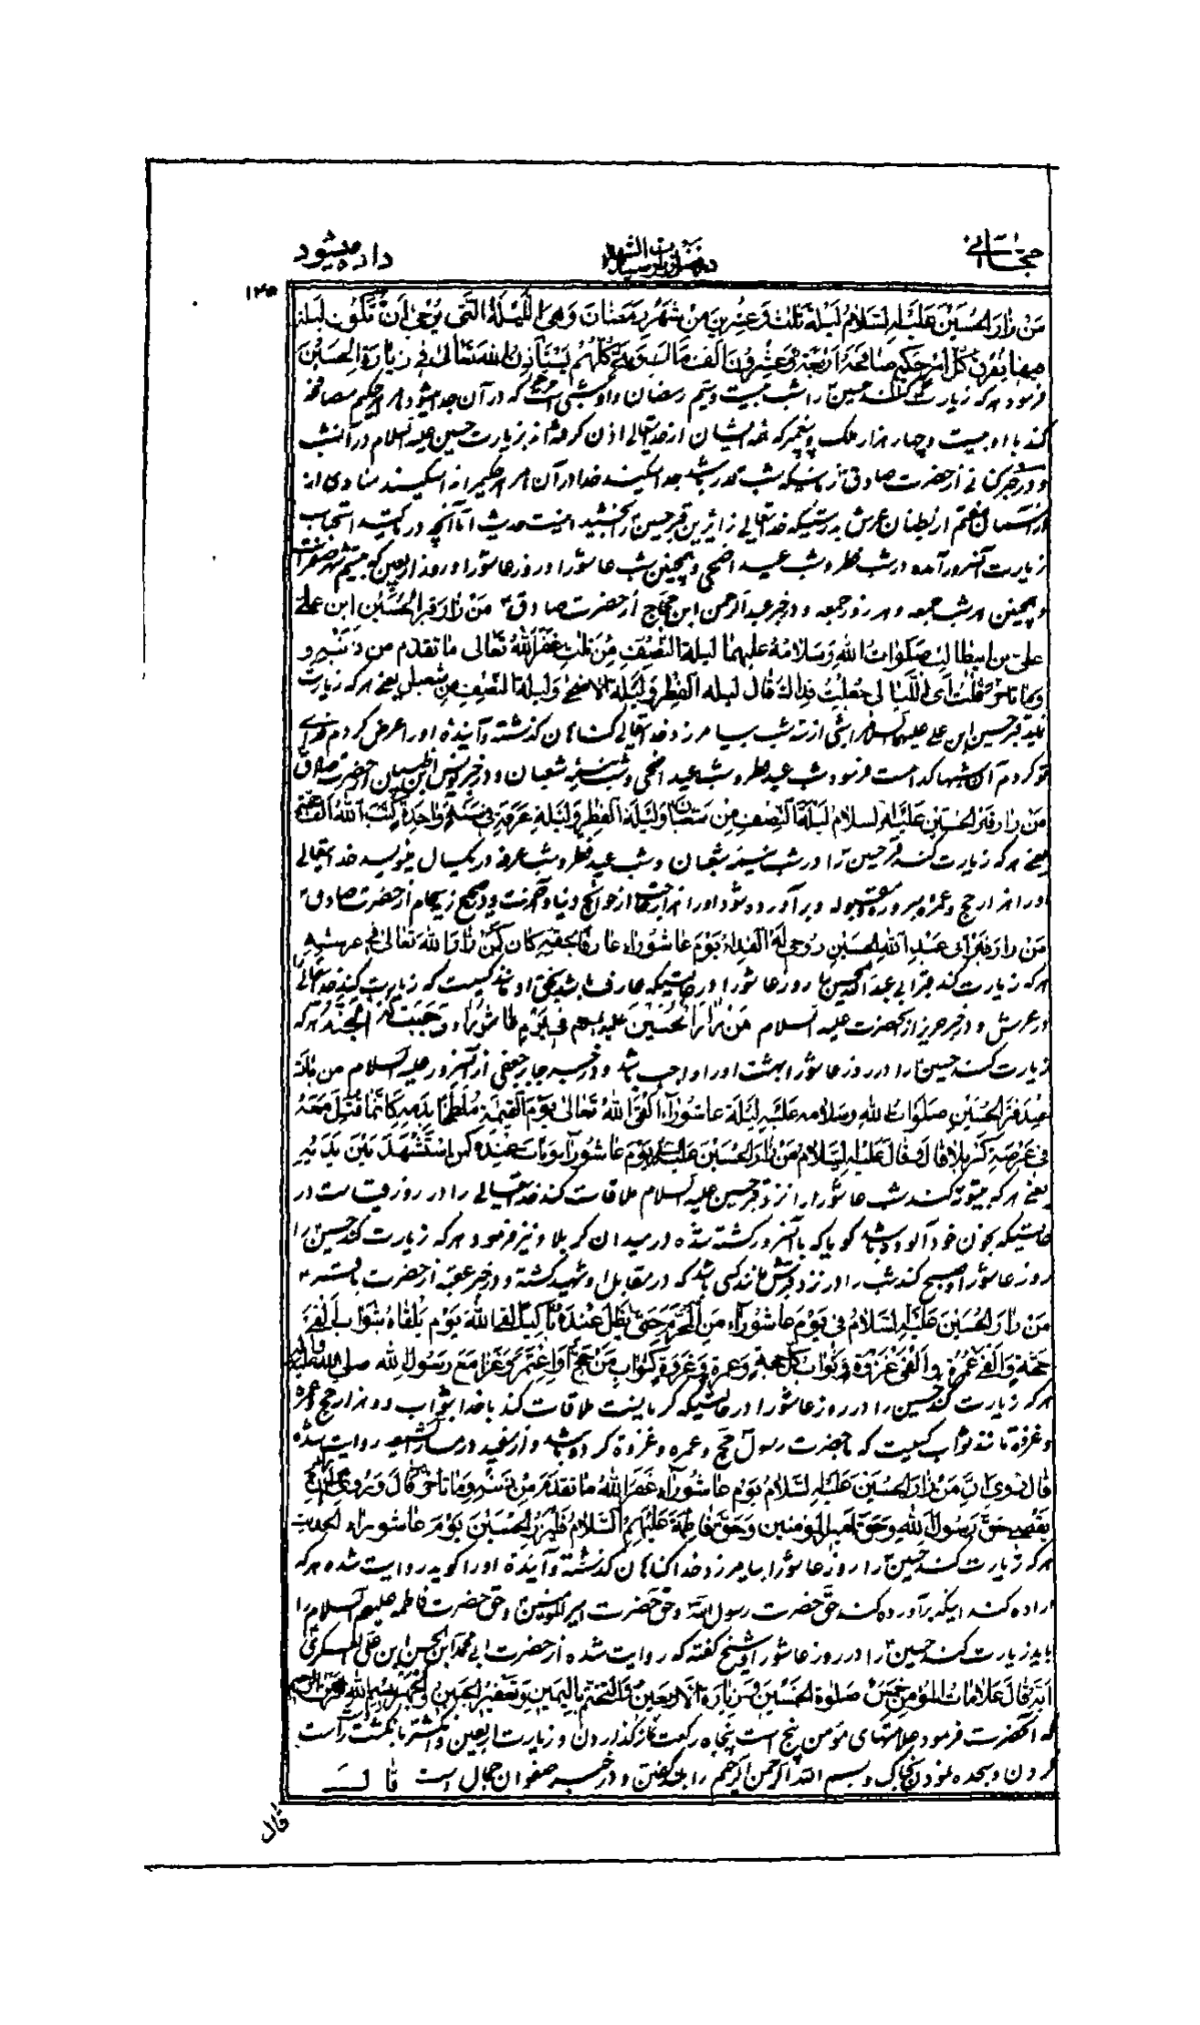 داده میشود
۱۳۵
مَن زارَ الحُسَینَ عَلَیهِ السَّلامُ لَیلَةَ ثَلاثٍ وَعِشرینَ مِن شَهرِ رَمَضانَ وَهِیَ اللَّیلَةُ الَّتی یُرجیٰ أن تَکُونَ لَیلة
فیها یُفرَقُ کُلُّ أمرٍ حَکیمٍ صافَحَهُ أربَعَةٌ وَعِشرُونَ ألفَ کُلُّهُم یَستَأذِنُ اللهَ تَعالیٰ فی زِیارَةِ الحُسَینِ
فرمود هرکه زیارت کند حسین را شب بیست وسیم رمضان و او شبی است که در آن جدا میشود هر امر حکیم مصافحه
کند با او بیست وچهار هزار ملک و پیغمبر که همه ایشان از خدایتعالی اذن کرفته اند بزیارت حسین علیه السلام در آنشب
از حضرت صادق شب قدر باشد جدا میکند خدا در آن هر امر حکیم ندا میکند منادی از
آسمان هفتم از بطنان عرش بدرستیکه خدایتعالی زائرین قبر حسین را بخشید اینست حدیث اما آنچه در استحباب
زیارت آنسرور آمده در شب فطر و شب عید اضحی وهمچنین شب عاشورا و روز عاشورا و روز اربعین که بیستم شهر صفر است
وهمچنین هر شب جمعه وهر روز جمعه و در خبر عبد الرحمن ابن حجاج از حضرت صادق مَن زارَ قبرَ الحُسَین ابن علی
صَلَواتُ اللهِ وَسَلامُهُ عَلَیهِما لیلة النِّصفِ غَفَرَ اللهُ تَعالی ما تَقَدَّمَ مِن ذَنبِهِ و
وَما تَأخَّرَ قُلتُ أیُّ اللَّیالی جُعِلتُ فِداکَ قالَ لیلة الفِطرِ وَلَیلة الأضحیٰ وَلیلة النِّصفِ مِن شعبان یعنی هرکه زیارت
قبر حسین ابن علی علیهما السلام شبی از سه شب بیامرزد خدایتعالی کناهان کذشته وآینده او را عرض کردم فدای
تو کردم آن شبها کدام است فرمود شب عید فطر و شب عید اضحی و شب نیمه شعبان و در خبر یونس ابن ظبیان از حضرت صادق
مَن زارَ قبرَ الحسَینِ عَلَیهِ السلام لَیلَةَ النِّصفِ مِن شَعبانَ وَلَیلَةَ الفِطرِ وَلَیلَةَ عَرَفَةَ فی سَنَةٍ واحِدَةٍ کَتَبَ اللهُ
یعنی هرکه زیارت کند قبر حسین را در شب نیمه شعبان و شب عید فطر و شب عرفه در یکسال بنویسد خدایتعالی
او را هزار حج وعمره مبروره مقبوله و برآورده شود او را هزار حاجت از حوائج دنیا وآخرت از حضرت صادق
مَن زارَ قَبرَ أبی عَبدِ اللهِ الحُسَینِ یَومَ عاشُوراءَ عارِفًا بِحَقِّهِ کانَ کَمَن زارَ اللهَ تَعالیٰ فی عَرشِهِ
هرکه زیارت کند قبر ابی عبد الله الحسین را روز عاشورا در حالتیکه عارف باشد بحق او مانند کسیست که زیارت کند خدایتعالی را
در عرش و در خبر حریز از آنحضرت علیه السلام مَن زارَ الحُسَینَ یَومَ عاشُوراءَ وَجَبَت لَهُ الجَنَّةُ هرکه
زیارت کند حسین را در روز عاشورا بهشت او را واجب باشد و در خبر جابر جعفی از آنسرور علیه السلام من بات
عِندَ قَبرِ الحُسَینِ صَلَواتُ اللهِ وسلامه عَلَیهِ لَیلَةَ عاشُوراءَ لَقِیَ اللهَ تَعالیٰ یَومَ القِیٰمَةِ مُلَطَّخًا بِدَمِهِ کَأنَّما قُتِلَ مَعَهُ
فی عَرصَةِ کَربَلا وَقالَ عَلَیهِ السَّلامُ مَن زارَ الحُسَینَ یَومَ عاشُوراءَ وَباتَ عِندَهُ کَمَنِ استُشهِدَ بَینَ یَدَیهِ
یعنی هرکه بیتوته کند شب عاشورا را نزد قبر حسین علیه السلام ملاقات کند خدایتعالی را در روز قیامت در
حالتیکه بخون خود آلوده باشد کویا که با آنسرور کشته شده در میدان کربلا و نیز فرمود هرکه زیارت کند حسین را
روز عاشورا و صبح کند شب را در نزد قبرش مانند کسی باشد که در مقابل او شهید کشته و در خبر عقبه از حضرت باقر
مَن زارَ الحُسَینَ عَلَیهِ السَّلامُ فی یَومِ عاشُوراءَ مِنَ المُحَرَّمِ حَتّیٰ یَظَلَّ عِندَهُ باکِیًا لَقِیَ اللهَ یَومَ یَلقاهُ بِثَوابِ ألفَی
حِجَّةٍ وَألفَی عُمرَةٍ وَألفَی غَزوَةٍ وَثَوابُ کُلِّ حِجَّةٍ وَعُمرَةٍ وَغَزوَةٍ کَثَوابِ مَن حَجَّ وَاعتَمَرَ وَغَزا مَعَ رَسُولِ اللهِ صلی الله علیه
هرکه زیارت کند حسین را در روز عاشورا در حالتیکه کریانست ملاقات کند با خدا بثواب دو هزار حج وعمره
وغزوه مانند ثواب کسیست که با حضرت رسول حج وعمره وغزوه کرده باشد و از مفید در روایت شده
قالَ رُوِیَ أنَّ مَن زارَ الحُسَینَ عَلَیهِ السَّلامُ یَومَ عاشُوراءَ غَفَرَ اللهُ ما تَقَدَّمَ مِن ذَنبِهِ وَما تَأخَّرَ قالَ وَرُوِیَ
حَقَّ رَسُولِ اللهِ وَحَقَّ أمیرِ المؤمِنینَ وَحَقَّ فاطِمَةَ عَلَیهِمُ السَّلامُ فَلیَزُرِ الحُسَینَ یَومَ عاشُوراءَ الحدیث
هرکه زیارت کند حسین را روز عاشورا بیامرزد خدا کناهان کذشته وآینده او را کوید روایت شده هرکه
اراده کند اینکه برآورده کند حق حضرت رسول الله وحق حضرت امیر المؤمنین وحق حضرت فاطمه علیهم السلام را
باید زیارت کند حسین را در روز عاشورا وشیخ کفته که روایت شده از حضرت ابی محمد الحسن ابن علی العسکری
أنَّهُ قالَ عَلاماتُ المُؤمِنِ خَمسٌ صَلاةُ الخمسینَ وَزِیارَةُ الأربَعینَ وَالتَّخَتُّمُ بِالیَمینِ وَتَعفیرُ الجَبینِ وَالجَهرُ بِبِسمِ اللهِ الرَّحمٰنِ الرَّحیمِ
که آنحضرت فرمود علامتهای مؤمن پنج است پنجاه رکعت نماز کذاردن و زیارت اربعین وانکشتر بانکشت راست
کردن وسجده نمودن بخاک و بسم الله الرحمن الرحیم را بلند کفتن و در خبر صفوان جمال است قال
قال